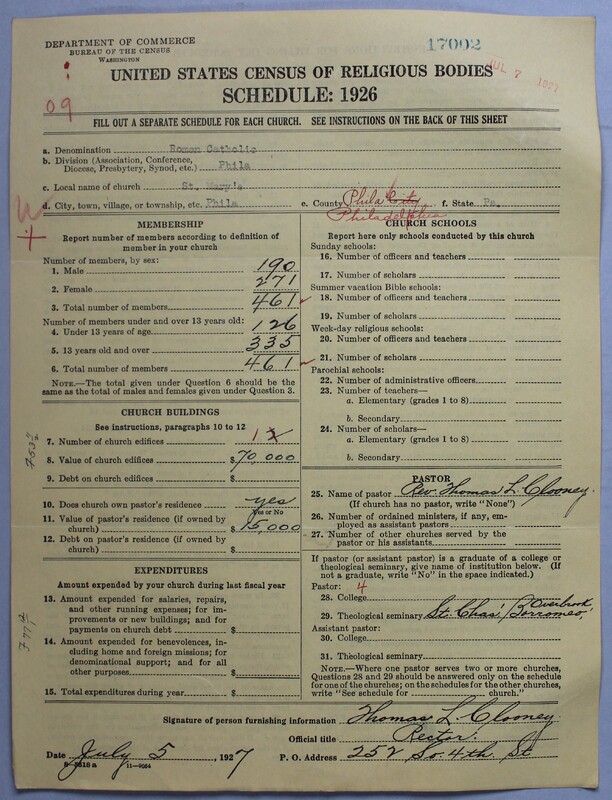 DEPARTMENT OF COMMERCE
BUREAU OF THE CENSUS
WASHINGTON
17002
JUL 7 1927
UNITED STATES CENSUS OF RELIGIOUS BODIES
SCHEDULE: 1926
09
FILL OUT A SEPARATE SCHEDULE FOR EACH CHURCH. SEE INSTRUCTIONS ON THE BACK OF THIS SHEET
a. Denomination Roman Catholic
b. Division (Association, Conference,
Diocese, Presbytery, Synod, etc.) Phila
c. Local name of church St. Mary's
d. City, town, village, or township, etc. Phila e. County Phila City f. State Pa.
Philadelphia
MEMBERSHIP
Report number of members according to definition of
member in your church
Number of members, by sex:
1. Male 190
2. Female 271
3. Total number of members. 461
Number of members under and over 13 years old:
4. Under 13 years of age 126
5. 13 years old and over 335
6. Total number of members 461
NOTE.—The total given under Question 6 should be
the same as the total of males and females given under Question 3.
CHURCH BUILDINGS
See instructions, paragraphs 10 to 12
7. Number of church edifices 1
8. Value of church edifices $ 70,000
9. Debt on church edifices $
10. Does church own pastor's residence yes
Yes or No
11. Value of pastor's residence (if owned by
church) $ 15,000
12. Debt on pastor's residence (if owned by
church) $
EXPENDITURES
Amount expended by your church during last fiscal year
13. Amount expended for salaries, repairs,
and other running expenses; for im-
provements or new buildings; and for
payments on church debt $
14. Amount expended for benevolences, in-
cluding home and foreign missions; for
denominational support; and for all
other purposes $
15. Total expenditures during year $
CHURCH SCHOOLS
Report here only schools conducted by this church
Sunday schools:
16. Number of officers and teachers
17. Number of scholars
Summer vacation Bible schools:
18. Number of officers and teachers
19. Number of scholars
Week-day religious schools:
20. Number of officers and teachers
21. Number of scholars
Parochial schools:
22. Number of administrative officers
23. Number of teachers—
a. Elementary (grades 1 to 8)
b. Secondary
24. Number of scholars—
a. Elementary (grades 1 to 8)
b. Secondary
PASTOR
25. Name of pastor Rev. Thomas L. Clooney
(If church has no pastor, write "None")
26. Number of ordained ministers, if any, em-
ployed as assistant pastors
27. Number of other churches served by the
pastor or his assistants
If pastor (or assistant pastor) is a graduate of a college or
theological seminary, give name of institution below. (If
not a graduate, write "No" in the space indicated.)
Pastor: 4
28. College
Overbrook
29. Theological seminary St. Chas. Borromeo,
Assistant pastor:
30. College
31. Theological seminary
NOTE.—Where one pastor serves two or more churches,
Questions 28 and 29 should be answered only on the schedule
for one of the churches; on the schedules for the other churches,
write "See schedule for church."
Signature of person furnishing information Thomas L. Clooney
Official title Rector.
Date July 5, 1927 P. O. Address 252 So. 4th St
8-5618 a 11-9084